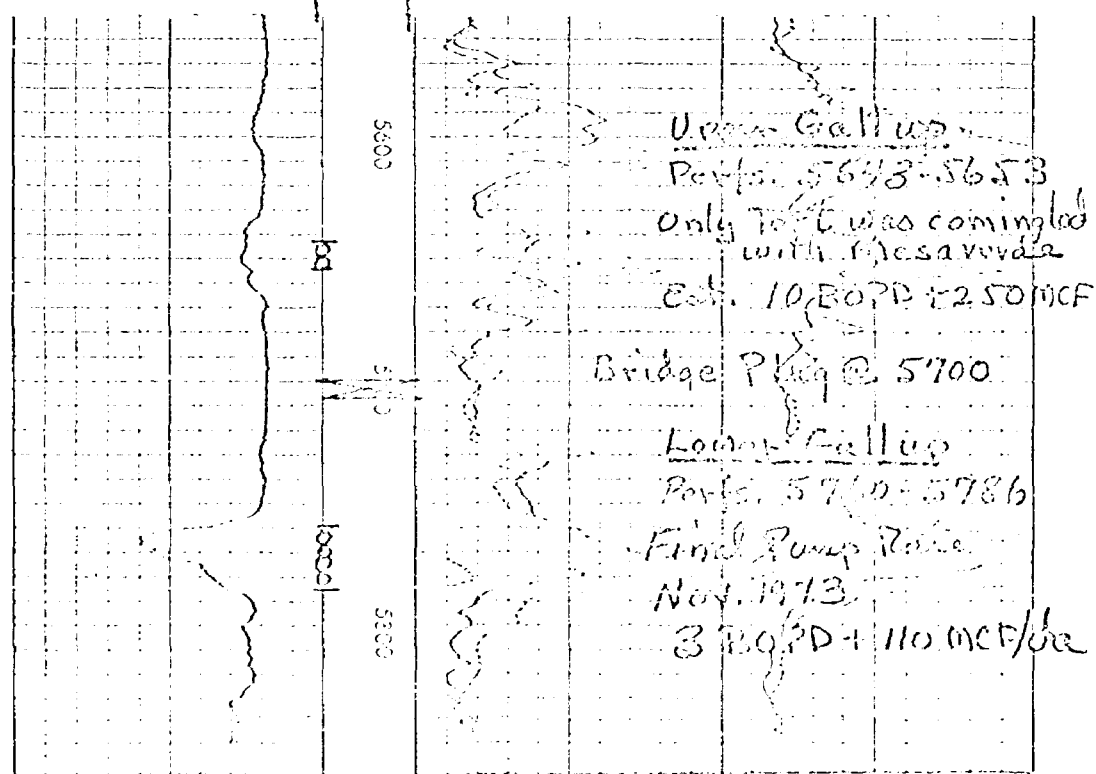 5600
Upper Gallup
Perfs. 5643-5653
Only 10 ft was comingled
with Mesaverde
Est. 10 BOPD + 250 MCF
Bridge Plug @ 5700
5700
Lower Gallup
Perfs. 5760-5786
Final Pump Rate
Nov. 1973
3 BOPD + 110 MCF/da
5800